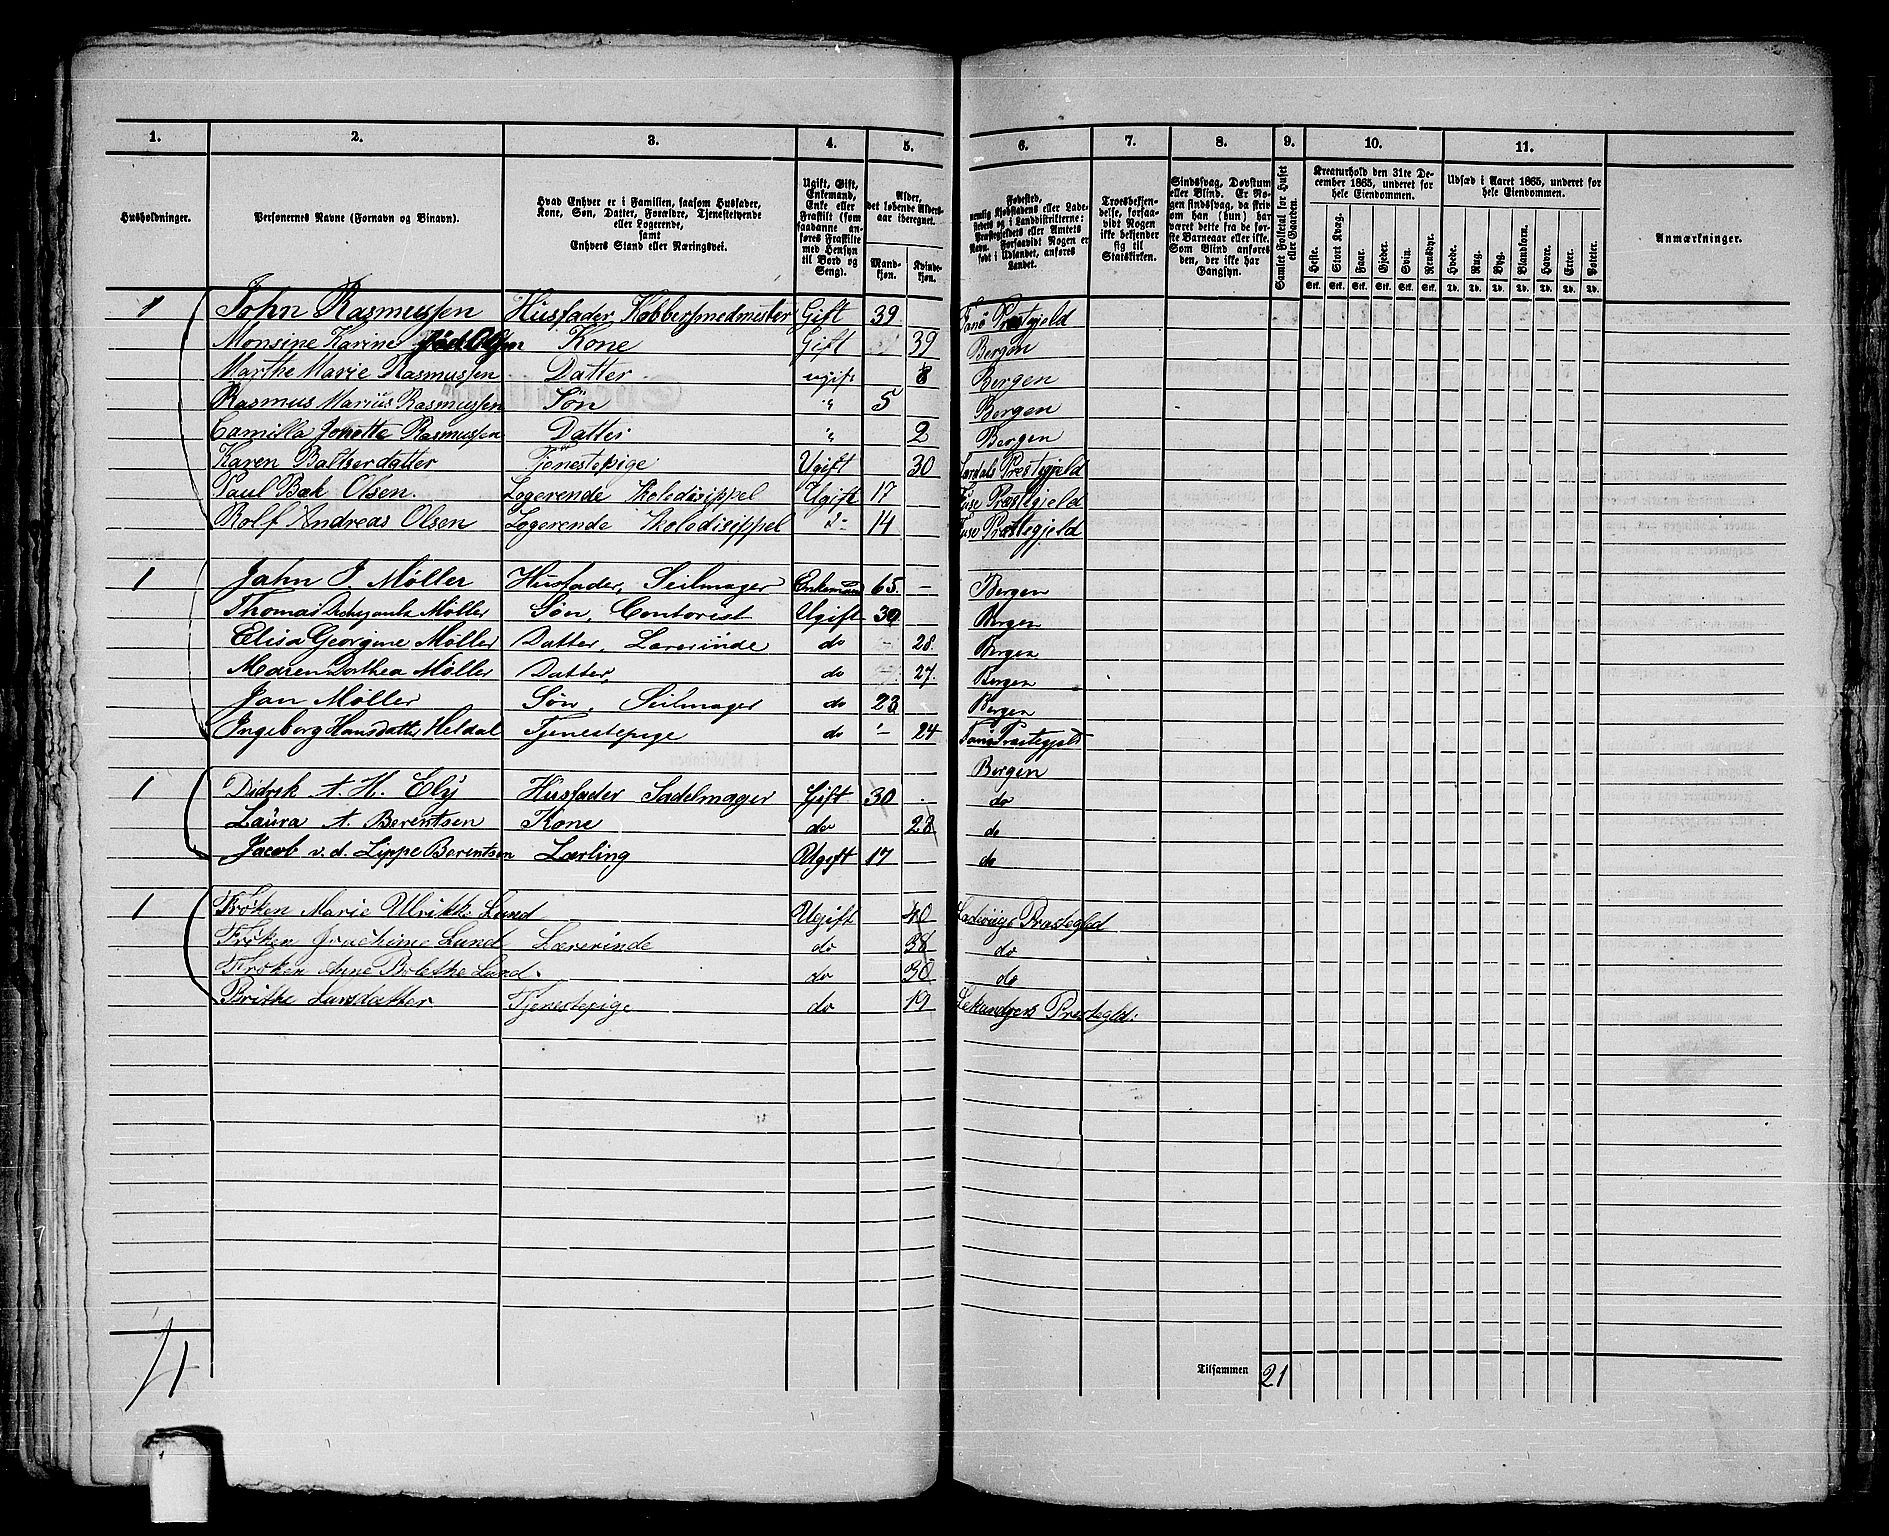 1. 2. 3. 4. 5. 6. 7. 8. 9. 10. 11.
Husholdninger.
Personernes Navne (Fornavn og Binavn).
Hvad Enhver er i Familien, saasom Husfader, Kone, Søn, Datter, Forældre, Tjenestetyende eller Logerende, samt Enhvers Stand eller Næringsvei.
Ugift, Gift, Enkemand, Enke eller Fraskilt (som saadanne anføres Fraskilte med Hensyn til Bord og Seng).
Alder, det løbende Aldersaar iberegnet.
Mandkjøn. Kvindekjøn.
Fødested, nemlig Kjøbstadens eller Ladestedets og i Landdistrikterne: Præstegjeldets eller Amtets Navn. Forsaavidt Nogen er født i Udlandet, anføres Landet.
Troesbekjendelse, forsaavidt Nogen ikke bekjender sig til Statskirken.
Sindssvag, Døvstum eller Blind. Er Nogen sindssvag, da skrives om han (hun) har været dette fra de første Barneaar eller ikke. Som Blind anføres den, der ikke har Gangsyn.
Samlet Folketal for Huset eller Gaarden.
Kreaturhold den 31te December 1865, underet for hele Eiendommen.
Heste. Stort Kvæg. Faar. Gjeder. Svin. Rensdyr.
Stk. Stk. Stk. Stk. Stk. Stk.
Udsæd i Aaret 1865, underet for hele Eiendommen.
Hvede. Rug. Byg. Blandkorn. Havre. Erter. Poteter.
Td. Td. Td. Td. Td. Td. Td.
Anmærkninger.
1 John Rasmussen Husfader Kobbersmedmester Gift 39 Fanø Prestgjeld
Monsine Karine Fød Olsen Kone Gift 39 Bergen
Marthe Marie Rasmussen Datter ugift 8 Bergen
Rasmus Marius Rasmussen Søn " 5 Bergen
Camilla Jonette Rasmussen Datter " 2 Bergen
Karen Baltserdatter Tjenestepige Ugift 30 Prestegjeld
Paul Bak Olsen. Logerende Skoledisippel Ugift 17 Fuse Præstgjeld
Rolf Andreas Olsen Logerende Skoledisippel 14 Fuse Præstegjeld
1 Jahn J. Møller Husfader, Seilmager Enkemand 65. – Bergen
Thomas Møller Søn, Contorist Ugift 30 Bergen
Elisa Georgine Møller Datter, Lærerinde do 28. Bergen
Maren Dorthea Møller Datter, do 27. Bergen
Jan Møller Søn, Seilmager do 23 Bergen
Ingeborg Hansdatter Heldal Tjenestepige do 24 Fanø Præstegjeld
Bergen
1 Didrik A. H. Ely Husfader Sadelmager Gift 30 do
Laura A. Berentsen Kone do 28 do
Jacob v. d. Lippe Berentsen Lærling Ugift 17 do
1 Frøken Marie Ulrikke Lund Ugift 40 Præstegld
Frøken Lund Lærerinde do 38 do
Frøken Anne Bolethe Lund. do 30 do
Brithe Larsdatter Tjenestepige do 19 Præstegld:
Tilsammen 21